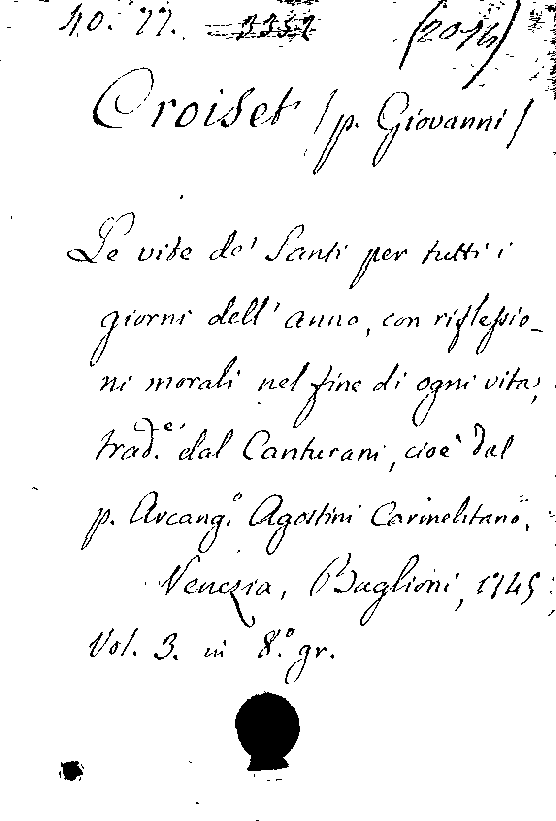 40. 77. (2016)
Croiset / p. Giovanni /
Le vite de' Santi per tutti i
giorni dell' anno, con riflessio-
ni morali nel fine di ogni vita;
trad.e dal Canturani, cioè dal
p. Arcang.o Agostini Carmelitano.
Venezia, Baglioni, 1745;
Vol. 3. in 8.o gr.